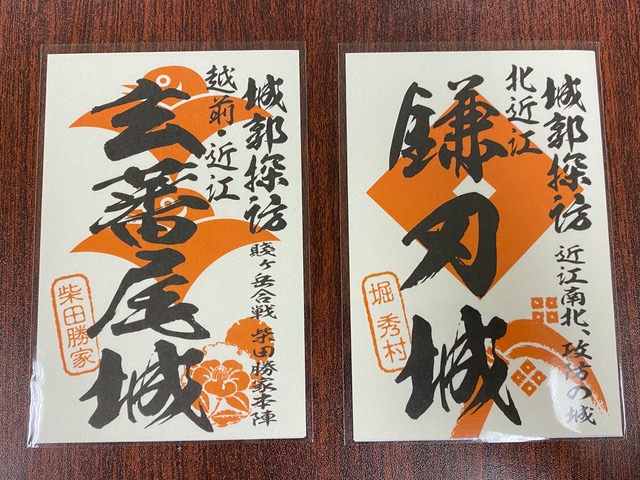 城郭探訪
越前・近江
玄蕃尾城
賤ヶ岳合戦 柴田勝家本陣
柴田勝家
城郭探訪
北近江
鎌刃城
近江南北、攻防の城
堀 秀村